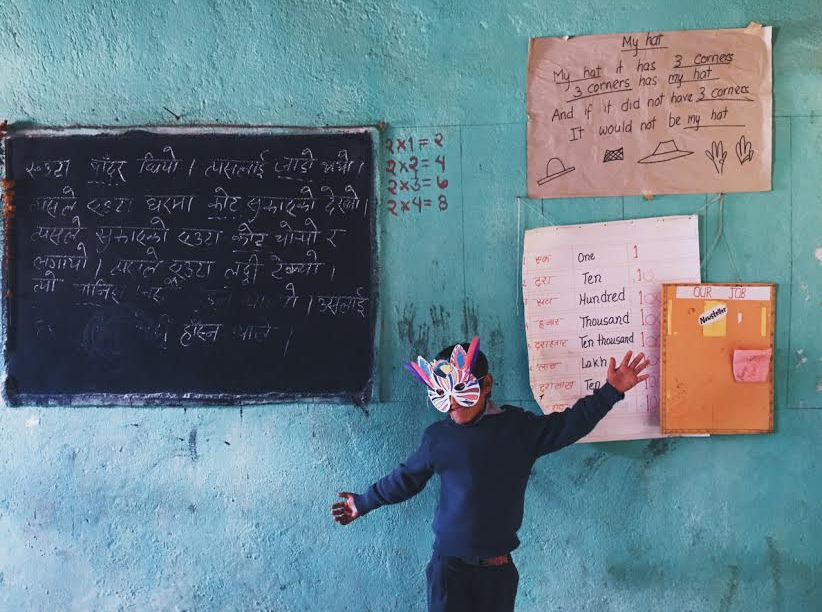 एउटा बाँदर थियो । त्यसलाई जाडो भयो ।
त्यसले एउटा घरमा कोट सुकाएको देख्यो ।
त्यसले सुकाएको एउटा कोट चोर्यो र
लगायो । त्यसले एउटा लट्ठी टेक्यो ।
त्यो । उसलाई
हाँस्न थाले ।
2×1=2
2×2=4
2×3=6
2×4=8
My hat
My hat it has 3 corners
3 corners has my hat
And if it did not have 3 corners
It would not be my hat
एक One 1
दश Ten 10
सय Hundred 100
हजार Thousand
दशहजार Ten thousand
लाख Lakh
दशलाख Ten
OUR JOB
Newsletter